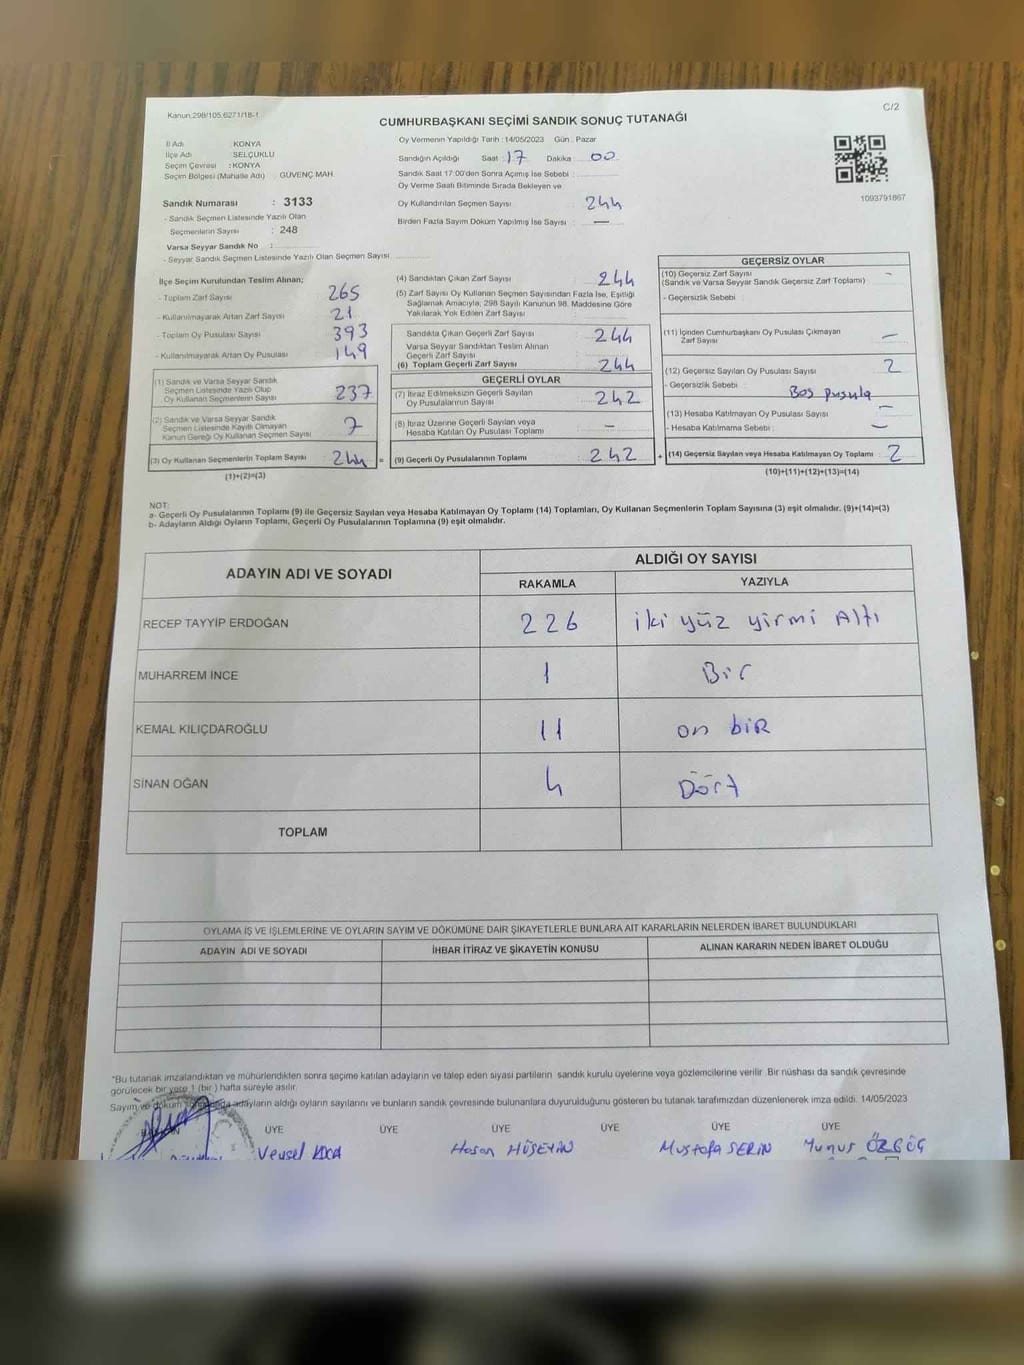 Kanun:298/105,6271/18-1
C/2
CUMHURBAŞKANI SEÇİMİ SANDIK SONUÇ TUTANAĞI
İl Adı KONYA
İlçe Adı SELÇUKLU
Seçim Çevresi : KONYA
Seçim Bölgesi (Mahalle Adı) : GÜVENÇ MAH.
Sandık Numarası : 3133
- Sandık Seçmen Listesinde Yazılı Olan
Seçmenlerin Sayısı : 248
Varsa Seyyar Sandık No :
- Seyyar Sandık Seçmen Listesinde Yazılı Olan Seçmen Sayısı
Oy Vermenin Yapıldığı Tarih : 14/05/2023 Gün : Pazar
Sandığın Açıldığı Saat : 17 Dakika : 00
Sandık Saat 17:00'den Sonra Açımış İse Sebebi :
Oy Verme Saati Bitiminde Sırada Bekleyen ve
Oy Kullandırılan Seçmen Sayısı : 244
Birden Fazla Sayım Döküm Yapılmış İse Sayısı : —
1093791867
İlçe Seçim Kurulundan Teslim Alınan;
- Toplam Zarf Sayısı 265
- Kullanılmayarak Artan Zarf Sayısı 21
- Toplam Oy Pusulası Sayısı 393
- Kullanılmayarak Artan Oy Pusulası 149
(1) Sandık ve Varsa Seyyar Sandık
Seçmen Listesinde Yazılı Olup
Oy Kullanan Seçmenlerin Sayısı 237
(2) Sandık ve Varsa Seyyar Sandık
Seçmen Listesinde Kayıtlı Olmayan
Kanun Gereği Oy Kullanan Seçmen Sayısı 7
(3) Oy Kullanan Seçmenlerin Toplam Sayısı 244 =
(1)+(2)=(3)
(4) Sandıktan Çıkan Zarf Sayısı 244
(5) Zarf Sayısı Oy Kullanan Seçmen Sayısından Fazla İse, Eşitliği
Sağlamak Amacıyla, 298 Sayılı Kanunun 98. Maddesine Göre
Yakılarak Yok Edilen Zarf Sayısı
Sandıkta Çıkan Geçerli Zarf Sayısı 244
Varsa Seyyar Sandıktan Teslim Alınan
Geçerli Zarf Sayısı
(6) Toplam Geçerli Zarf Sayısı 244
GEÇERLİ OYLAR
(7) İtiraz Edilmeksizin Geçerli Sayılan
Oy Pusulalarının Sayısı 242
(8) İtiraz Üzerine Geçerli Sayılan veya
Hesaba Katılan Oy Pusulası Toplamı —
(9) Geçerli Oy Pusulalarının Toplamı 242 +
GEÇERSİZ OYLAR
(10) Geçersiz Zarf Sayısı —
(Sandık ve Varsa Seyyar Sandık Geçersiz Zarf Toplamı)
- Geçersizlik Sebebi :
(11) İçinden Cumhurbaşkanı Oy Pusulası Çıkmayan
Zarf Sayısı —
(12) Geçersiz Sayılan Oy Pusulası Sayısı 2
- Geçersizlik Sebebi : Boş pusula
(13) Hesaba Katılmayan Oy Pusulası Sayısı —
- Hesaba Katılmama Sebebi : —
(14) Geçersiz Sayılan veya Hesaba Katılmayan Oy Toplamı : 2
(10)+(11)+(12)+(13)=(14)
NOT:
a- Geçerli Oy Pusulalarının Toplamı (9) ile Geçersiz Sayılan veya Hesaba Katılmayan Oy Toplamı (14) Toplamları, Oy Kullanan Seçmenlerin Toplam Sayısına (3) eşit olmalıdır. (9)+(14)=(3)
b- Adayların Aldığı Oyların Toplamı, Geçerli Oy Pusulalarının Toplamına (9) eşit olmalıdır.
ADAYIN ADI VE SOYADI ALDIĞI OY SAYISI
RAKAMLA YAZIYLA
RECEP TAYYİP ERDOĞAN 226 iki yüz yirmi Altı
MUHARREM İNCE 1 Bir
KEMAL KILIÇDAROĞLU 11 on biR
SİNAN OĞAN 4 Dört
TOPLAM
OYLAMA İŞ VE İŞLEMLERİNE VE OYLARIN SAYIM VE DÖKÜMÜNE DAİR ŞİKAYETLERLE BUNLARA AİT KARARLARIN NELERDEN İBARET BULUNDUKLARI
ADAYIN ADI VE SOYADI İHBAR İTİRAZ VE ŞİKAYETİN KONUSU ALINAN KARARIN NEDEN İBARET OLDUĞU
*Bu tutanak imzalandıktan ve mühürlendikten sonra seçime katılan adayların ve talep eden siyasi partilerin sandık kurulu üyelerine veya gözlemcilerine verilir. Bir nüshası da sandık çevresinde
görülecek bir yere 1 (bir) hafta süreyle asılır.
Sayım ve döküm adayların aldığı oyların sayılarını ve bunların sandık çevresinde bulunanlara duyurulduğunu gösteren bu tutanak tarafımızdan düzenlenerek imza edildi. 14/05/2023
ÜYE ÜYE ÜYE ÜYE ÜYE ÜYE
Veysel KOCA Hasan HÜSEYİN Mustafa SERİN Yunus ÖZGÜÇ